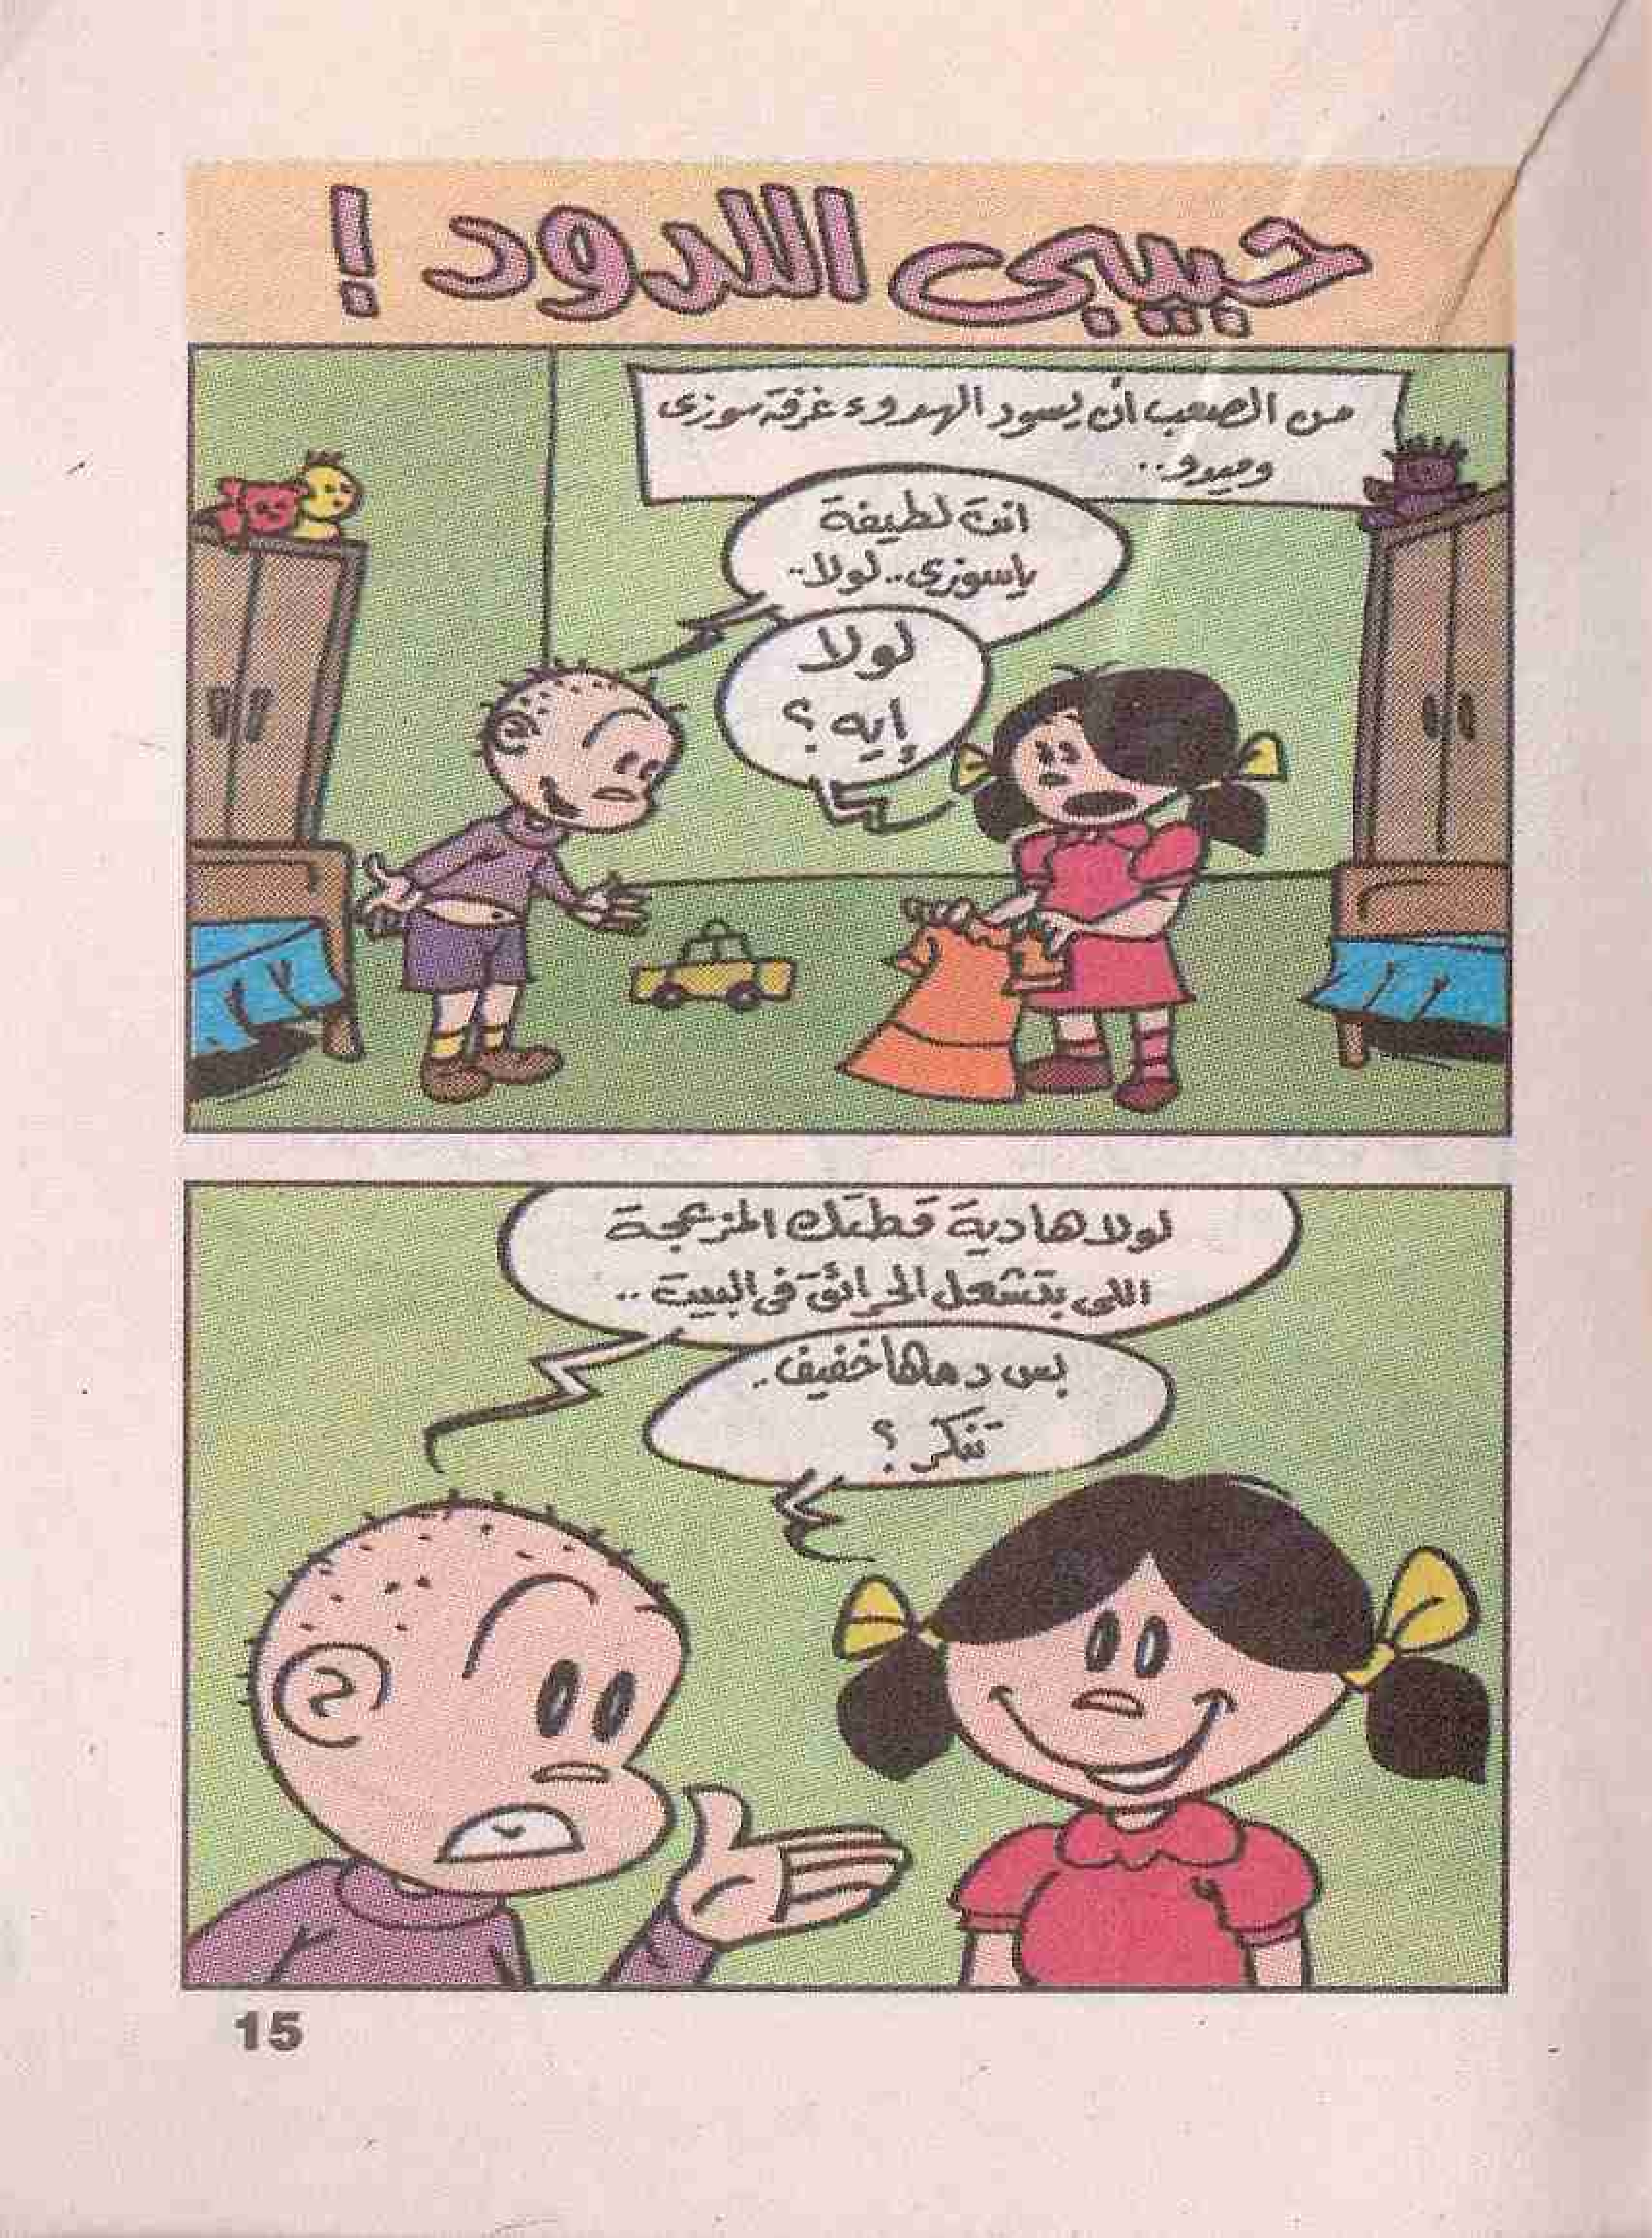 حبيبى اللدود !
من الصعب أن يسود الهدوء غرفة سوزى
وميدو..
انت لطيفة
ياسوزى.. لولا..
لولا
إيه ؟
لولا هادية قطتك المزعجة
اللى بتشعل الحرائق فى البيت ..
بس دمها خفيف.
تنكر ؟
15